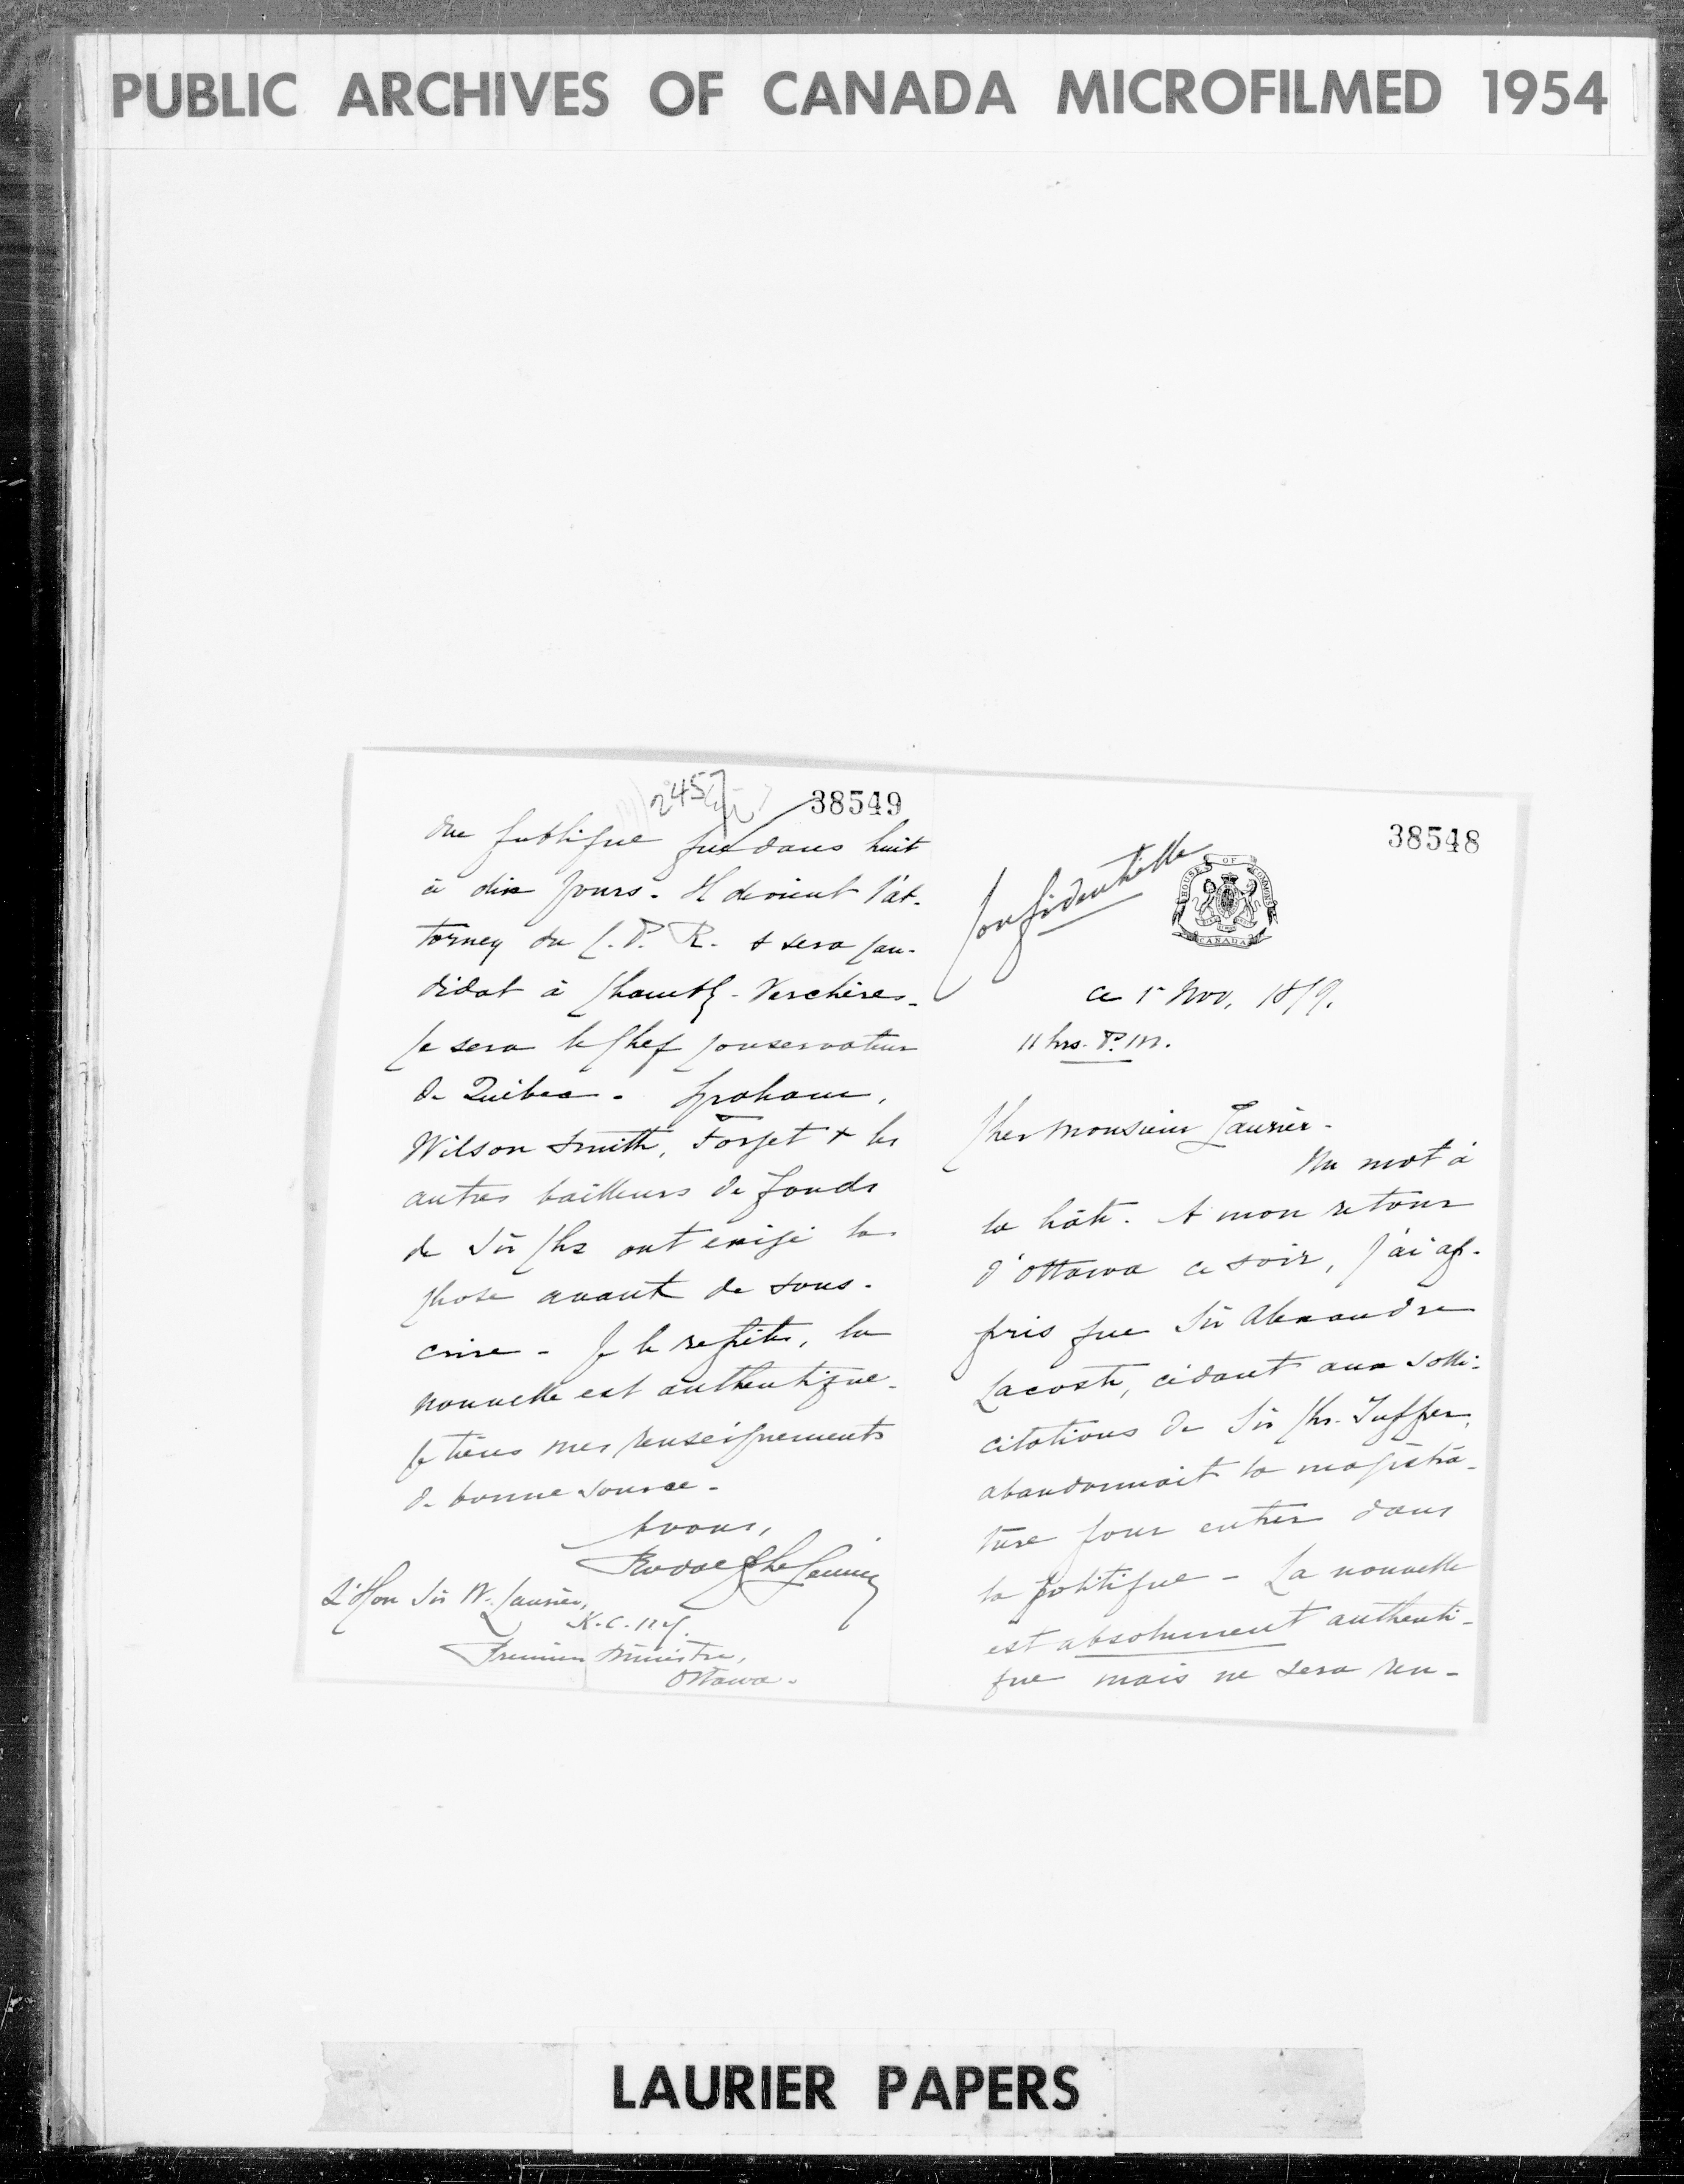 PUBLIC ARCHIVES OF CANADA MICROFILMED 1954
38548
Confidentielle
HOUSE OF COMMONS
CANADA
ce 5 Nov. 1899.
11 hrs. P.M.
Cher monsieur Laurier -
Un mot à
la hâte. A mon retour
d'Ottawa ce soir, j'ai ap-
pris que Sir Alexandre
Lacoste, cédant aux solli-
citations de Sir Chs. Tupper,
abandonnait la magistra-
ture pour entrer dans
la politique - La nouvelle
est absolument authenti-
que mais ne sera ren-
2457
38549
due publique que dans huit
à dix jours. Il devient l'at-
torney du C.P.R. & sera can-
didat à Chambly-Verchères -
Ce sera le chef conservateur
de Québec - Graham,
Wilson Smith, Forget & les
autres bailleurs de fonds
de Sir Chs ont exigé la
chose avant de sous-
crire - Je le répète, la
nouvelle est authentique -
Je tiens mes renseignements
de bonne source -
A vous,
Rodolphe Lemieux
L'Hon Sir W. Laurier,
K.C.M.G.
Premier Ministre,
Ottawa -
LAURIER PAPERS